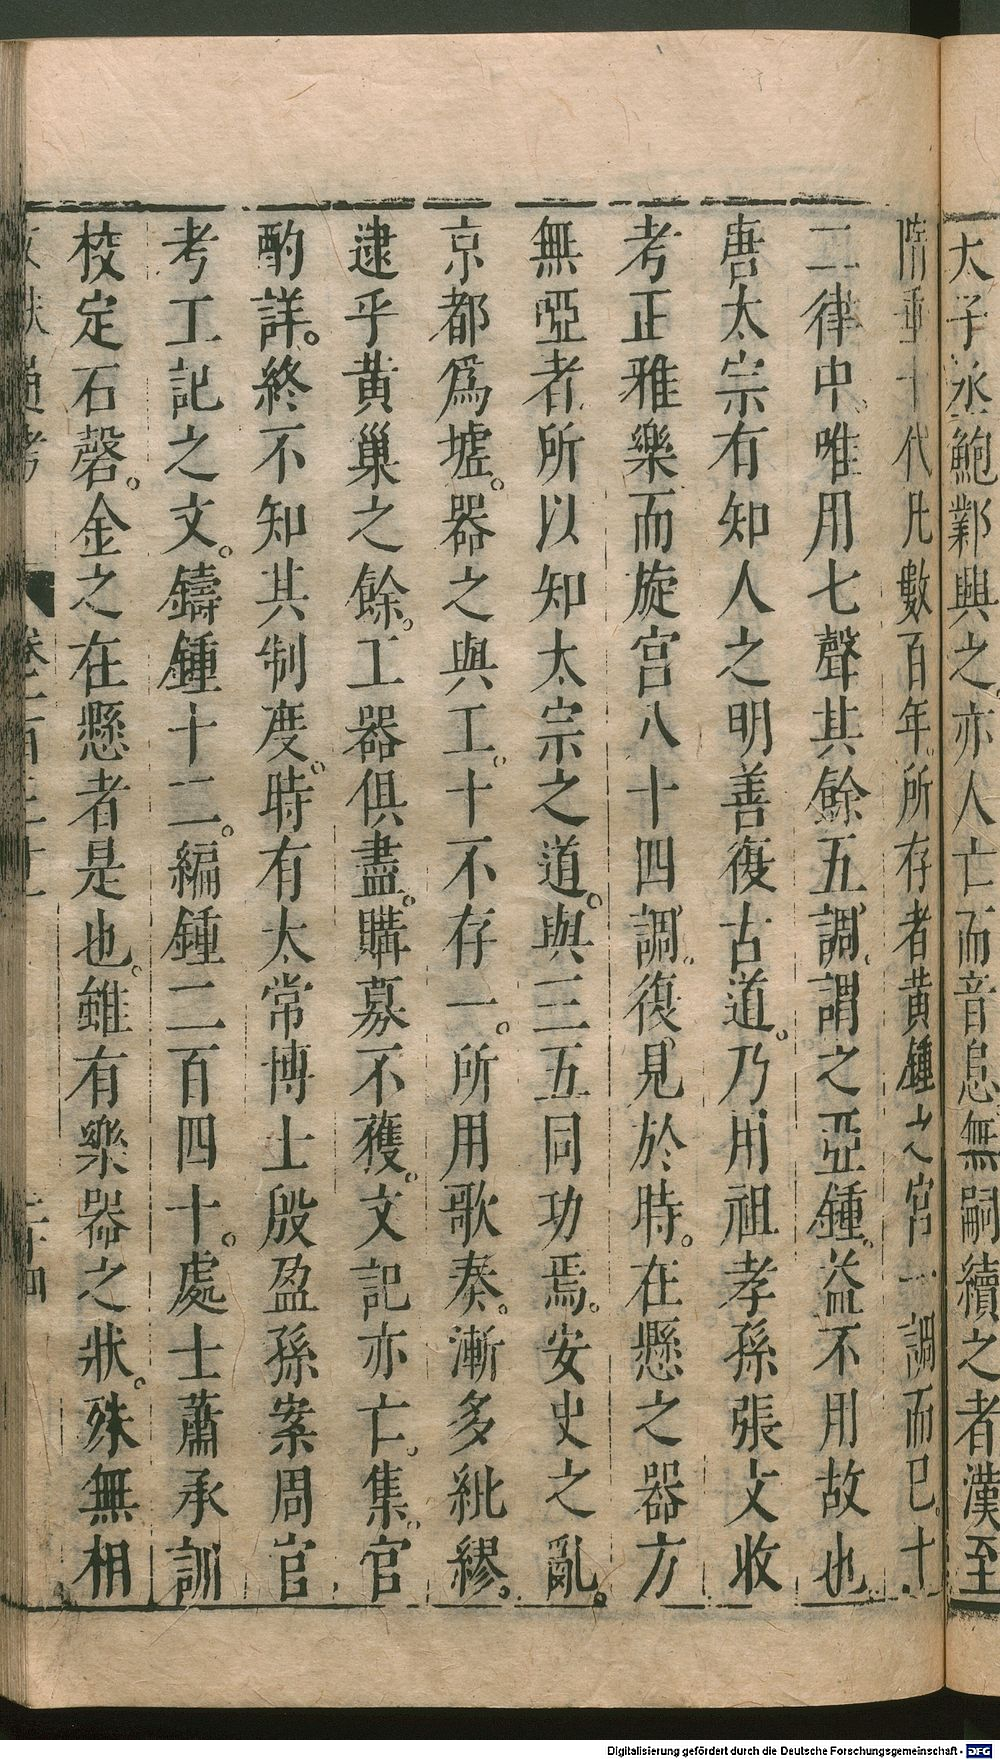 太子丞鮑鄴興之亦人亡而音息無嗣續之者漢至
隋垂十代凡數百年所存者黃鍾之宮一調而已十
二律中唯用七聲其餘五調謂之啞鍾益不用故也
唐太宗有知人之明善復古道。乃用祖孝孫張文收
考正雅樂而旋宮八十四調。復見於時。在懸之器方
無啞者所以知太宗之道。與三五同功焉。安史之亂。
京都爲墟。器之與工。十不存一。所用歌奏。漸多紕繆。
逮乎黃巢之餘。工器俱盡。購募不獲。文記亦亡。集官
酌詳。終不知其制度。時有太常博士殷盈孫案周官
考工記之文。鑄鍾十二。編鍾二百四十。處士蕭承訓
校定石磬。金之在懸者是也。雖有樂器之狀。殊無相
Digitalisierung gefördert durch die Deutsche Forschungsgemeinschaft - DFG